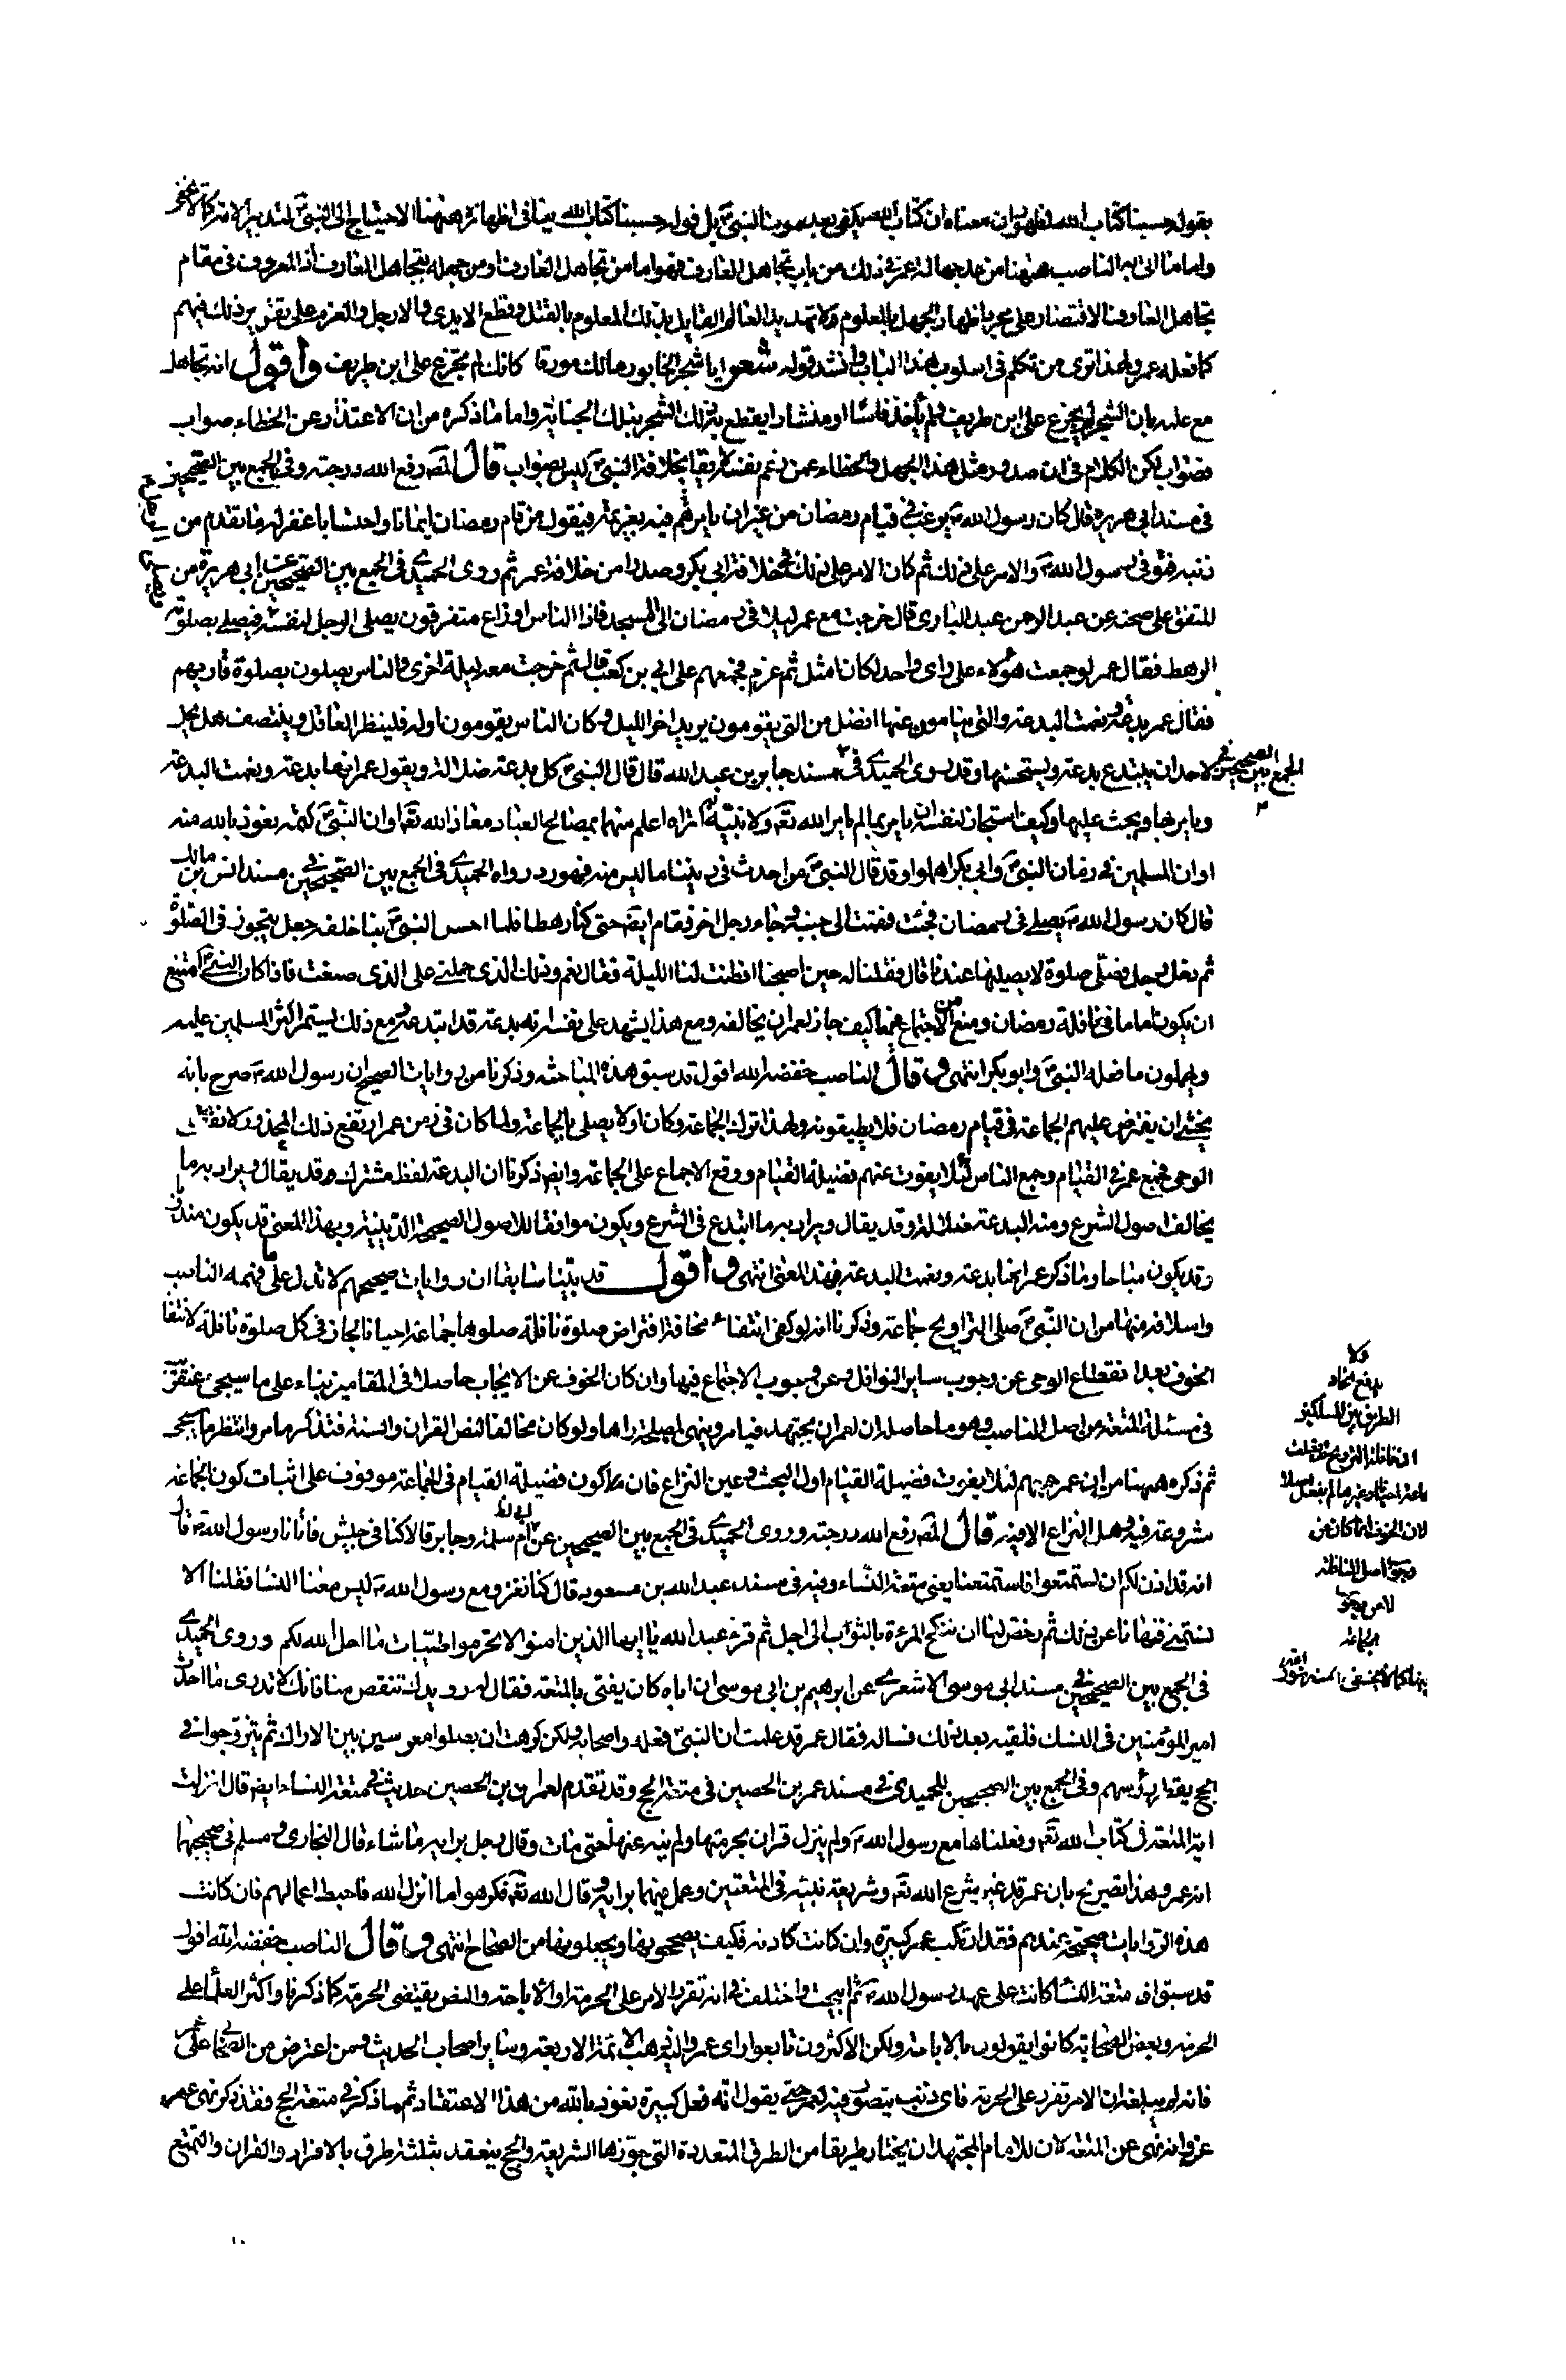 بقوله حسبنا كتاب الله لظهور ان معناه ان كتاب الله يكفى بعد موت النبى ص بل قوله حسبنا كتاب الله ينافى اظهاره ههنا الاحتياج الى النبى ص لتدبير الامة كما لا يخفى
واما ما اتى به الناصب ههنا من عد جهالة عمر فى ذلك من باب تجاهل العارف فهو اما من تجاهل العارف او من جهله بتجاهل العارف اذ المعروف فى مقام
تجاهل العارف الاقتصار على مجرد اظهار الجهل بالمعلوم ولا تهديد العالم القايل بذلك المعلوم بالقتل وقطع الايدى والارجل والعزم على تقرير ذلك فيهم
كما فعله عمر ولهذا ترى من تكلم فى اسلوب هذا الباب وانشد قوله شعر ايا شجر الخابور مالك مورقا كانك لم تجزع على ابن طريف واقول انه تجاهل
مع علمه بان الشجر لم يجزع على ابن طريف ولم يأخذ فاسا او منشارا يقطع به ذلك الشجر بتلك الجناية واما ما ذكره من ان الاعتذار عن الخطاء صواب
فصواب لكن الكلام فى ان صدور مثل هذا الجهل والخطاء عمن زعم نفسه لايقا بخلافة النبى ص ليس بصواب قال المص رفع الله درجته وفى الجمع بين الصحيحين
فى مسند ابى هريرة قال كان رسول الله ص يرغب فى قيام رمضان من غير ان يامرهم فيه بعزيمة فيقول من قام رمضان ايمانا واحتسابا غفر له ما تقدم من
ذنبه فتوفى رسول الله ص والامر على ذلك ثم كان الامر على ذلك فى خلافة ابى بكر وصدرا من خلافة عمر ثم روى الحميدى فى الجمع بين الصحيحين عن ابى هريرة من
المتفق على صحته عن عبد الرحمن عبد البارى قال خرجت مع عمر ليلا فى رمضان الى المسجد فاذا الناس اوزاع متفرقون يصلى الرجل لنفسه فيصلى بصلوته
الرهط فقال عمر لو جمعت هؤلاء على راى واحد لكان امثل ثم عزم فجمعهم على ابى بن كعب قال ثم خرجت معه ليلة اخرى والناس يصلون بصلوة قاريهم
فقال عمر بدعة ونعمت البدعة والتى ينامون عنها افضل من التى يقومون يريد اخر الليل وكان الناس يقومون اوله فلينظر العاقل وينتصف هل يحل
لاحد ان يبتدع بدعة ويستحسنها وقد روى الحميدى فى مسند جابر بن عبد الله قال قال النبى ص كل بدعة ضلالة ويقول عمر انها بدعة ونعمت البدعة
الجمع بين الصحيحين فى
ويامر بها ويحث عليها وكيف استجاز لنفسه ان يامر بما لم يامر الله تعم ولا نبيه اتراه اعلم منهما بمصالح العباد معاذ الله تعم او ان النبى ص كتمه نعوذ بالله منه
او ان المسلمين فى زمان النبى ص وابى بكر اهملوا وقد قال النبى ص من احدث فى ديننا ما ليس منه فهو رد رواه الحميدى فى الجمع بين الصحيحين فى مسند انس بن مالك
قال كان رسول الله ص يصلى فى رمضان فجئت فقمت الى جنبه وجاء رجل اخر فقام ايض حتى كنا رهطا فلما احس النبى ص بنا خلفه جعل يتجوز فى الصلوة
ثم دخل رحله فصلى صلوة لا يصليها عندنا قال فقلنا له حين اصبحنا افطنت لنا الليلة فقال نعم وذلك الذى حملنى على الذى صنعت فاذا كان النبى ص امتنع
ان يكون اماما فى نافلة رمضان ومنع من الاجتماع فيها كيف جاز لعمر ان يخالفه ومع هذا يشهد على نفسه انه بدعة قد ابتدعه ومع ذلك يستمر اكثر المسلمين عليه
ويهملون ما فعله النبى ص وابو بكر انتهى وقال الناصب خفضه الله اقول قد سبق هذه المباحث وذكرنا من روايات الصحاح ان رسول الله ص صرح بانه
يخشى ان يفترض عليهم الجماعة فى قيام رمضان فلا يطيقونه ولهذا ترك الجماعة وكان اولا يصلى بالجماعة ولما كان فى زمن عمر ارتفع ذلك المحذور لانقطاع
الوحى فجمع عمر فى القيام وجمع الناس لئلا يفوت عنهم فضيلة القيام ووقع الاجماع على الجماعة وايض ذكرنا ان البدعة لفظ مشترك وقد يقال ويراد به ما
يخالف اصول الشرع ومنه البدعة ضلالة وقد يقال ويراد به ما ابتدع فى الشرع ويكون موافقا للاصول الصحيحة الدينية وبهذا المعنى قد يكون مندوبا
وقد يكون مباحا وما ذكر عمر انها بدعة ونعمت البدعة فهذا المعنى انتهى واقول قد بينا سابقا ان روايات صحيحهم لا تدل على ما فهمه الناصب
واسلافه منها من ان النبى ص صلى التراويح جماعة وذكرنا انه لو كفى انتفاء مخافة افتراض صلوة نافلة صلوها جماعة احيانا لجاز فى كل صلوة نافلة لانتفا
الخوف بعد انقطاع الوحى عن وجوب ساير النوافل وعن وجوب الاجتماع فيها وان كان الخوف عن الايجاب حاصلا فى المقامين بناء على ما سيجئ عنقريب
فى مسئلة المتعة من اصل الناصب وهو ما حاصله ان لعمر ان يجتهد فيامر وينهى لمصلحة راها ولو كان مخالفا لنص القران والسنة فتذكر ما مر وانتظر ما سيجئ
ثم ذكره ههنا من ان عمر جمعهم لئلا يفوت فضيلة القيام اول البحث وعين النزاع فان كون فضيلة القيام فى الجماعة موقوف على اثبات كون الجماعة
مشروعة فيه وهل النزاع الا فيه قال المص رفع الله درجته وروى الحميدى فى الجمع بين الصحيحين عن ام سلمة وجابر قالا كنا فى جيش فاتانا رسول الله ص قال
انه قد اذن لكم ان تستمتعوا فاستمتعنا يعنى متعة النساء وفيه فى مسند عبد الله بن مسعود قال كنا نغزو مع رسول الله ص ليس معنا النسا فقلنا الا
نستمنى فنهانا عن ذلك ثم رخص لنا ان ننكح المرءة بالثوب الى اجل ثم قرء عبد الله يا ايها الذين امنوا لا تحرموا طيبات ما احل الله لكم وروى الحميدى
فى الجمع بين الصحيحين فى مسند ابى موسى الاشعرى عن ابرهيم بن ابى موسى ان اباه كان يفتى بالمتعة فقال له رويدك تنقص فانك لا تدرى ما احدث
امير المؤمنين فى النسك فلقيه بعد ذلك فساله فقال عمر قد علمت ان النبى ص فعله واصحابه ولكن كرهت ان يصلوا معرسين بين الاراك ثم يتزوجوا فى
الحج يقطر رؤسهم وفى الجمع بين الصحيحين للحميدى فى مسند عمر بن الحصين فى متعة الحج وقد تقدم لعمران بن الحصين حديث فى متعة النساء ايض قال انزلت
اية المتعة فى كتاب الله تعم وفعلناها مع رسول الله ص ولم ينزل قران بحرمتها ولم ينه عنها حتى مات وقال رجل برايه ما شاء قال البخارى ومسلم فى صحيحيهما
انه عمر وهذا تصريح بان عمر قد غير شرع الله تعم وشريعة نبيه فى المتعتين وعمل فيهما برايه وقال الله تعم فكرهوا ما انزل الله فاحبط اعمالهم فان كانت
هذه الروايات صحيحة عندهم فقد ارتكب عمر كبيرة وان كانت كاذبة فكيف يصححونها ويجعلونها من الصحاح انتهى وقال الناصب خفضه الله اقول
قد سبق ان متعة النسا كانت على عهد رسول الله ص ثم ابيحت واختلف فى انه تقرر الامر على الحرمة او الاباحة والنص يقتضى الحرمة كما ذكرنا واكثر العلماء على
الحرمة وبعض الصحابة كانوا يقولون بالاباحة ولكن الاكثرون تابعوا راى عمر واليه ذهب الائمة الاربعة وساير اصحاب الحديث فمن اعترض من الصحابة على عمر
فانه لم يبلغه ان الامر تقرر على الحرمة فاى ذنب يتصور فيه لعمر حتى يقول انه فعل كبيرة نعوذ بالله من هذا الاعتقاد ثم ما ذكر فى متعة الحج فقد ذكر نهى عمر
عن وانه نهى عن المتعة لان للامام المجتهد ان يختار طريقا من الطرق المتعددة التى جوزها الشريعة والحج ينعقد بثلثة طرق بالافراد والقران والتمتع
ولا
الطريق بين المسلكين
لان الخوف انما كان عن
وجوب اصل النافلة
لا عن وجوب
الجماعة